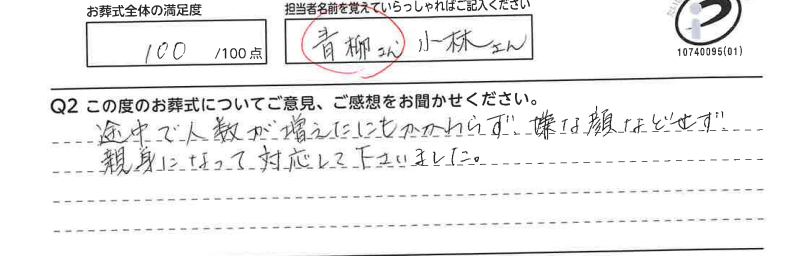 お葬式全体の満足度
担当者名前を覚えていらっしゃればご記入ください
100 /100点
青柳さん 小林さん
10740095(01)
Q2 この度のお葬式についてご意見、ご感想をお聞かせください。
途中で人数が増えたにもかかわらず、嫌な顔などせず
親身になって対応して下さいました。